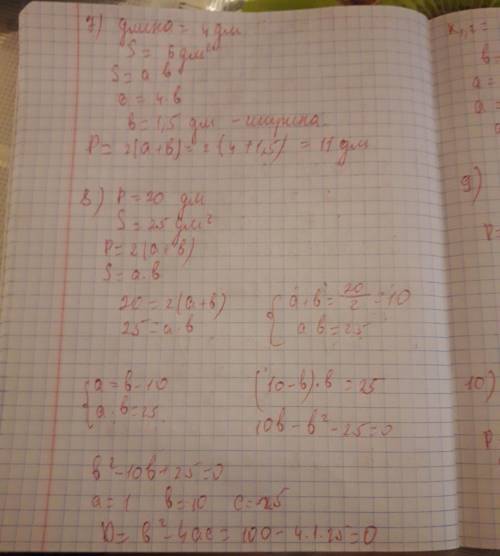 7) длина = 4 дм
S = 6 дм²
S = a·b
6 = 4·b
b = 1,5 дм - ширина
P = 2(a+b) = 2(4+1,5) = 11 дм
8) P = 20 дм
S = 25 дм²
P = 2(a+b)
S = a·b
20 = 2(a+b)
25 = a·b
{ a+b = 20/2 = 10
a·b = 25
{ a = b-10
a·b = 25
(10-b)·b = 25
10b - b² - 25 = 0
b² - 10b + 25 = 0
a = 1 b = 10 c = 25
D = b² - 4ac = 100 - 4·1·25 = 0
x₁,₂ =
b =
a =
a =
9)
P =
10)
P